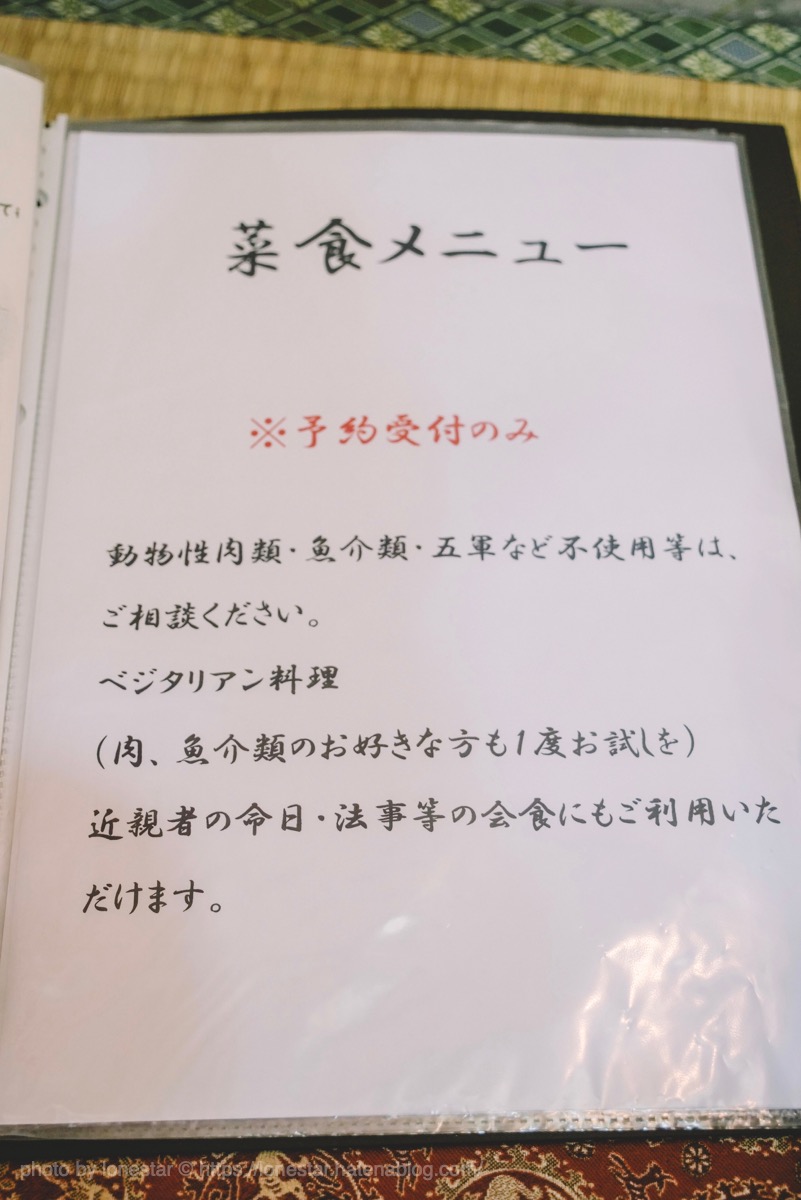 菜食メニュー
※予約受付のみ
動物性肉類・魚介類・五軍など不使用等は、
ご相談ください。
ベジタリアン料理
（肉、魚介類のお好きな方も1度お試しを）
近親者の命日・法事等の会食にもご利用いた
だけます。
photo by lonestar © https://lonestar.hatenablog.com/